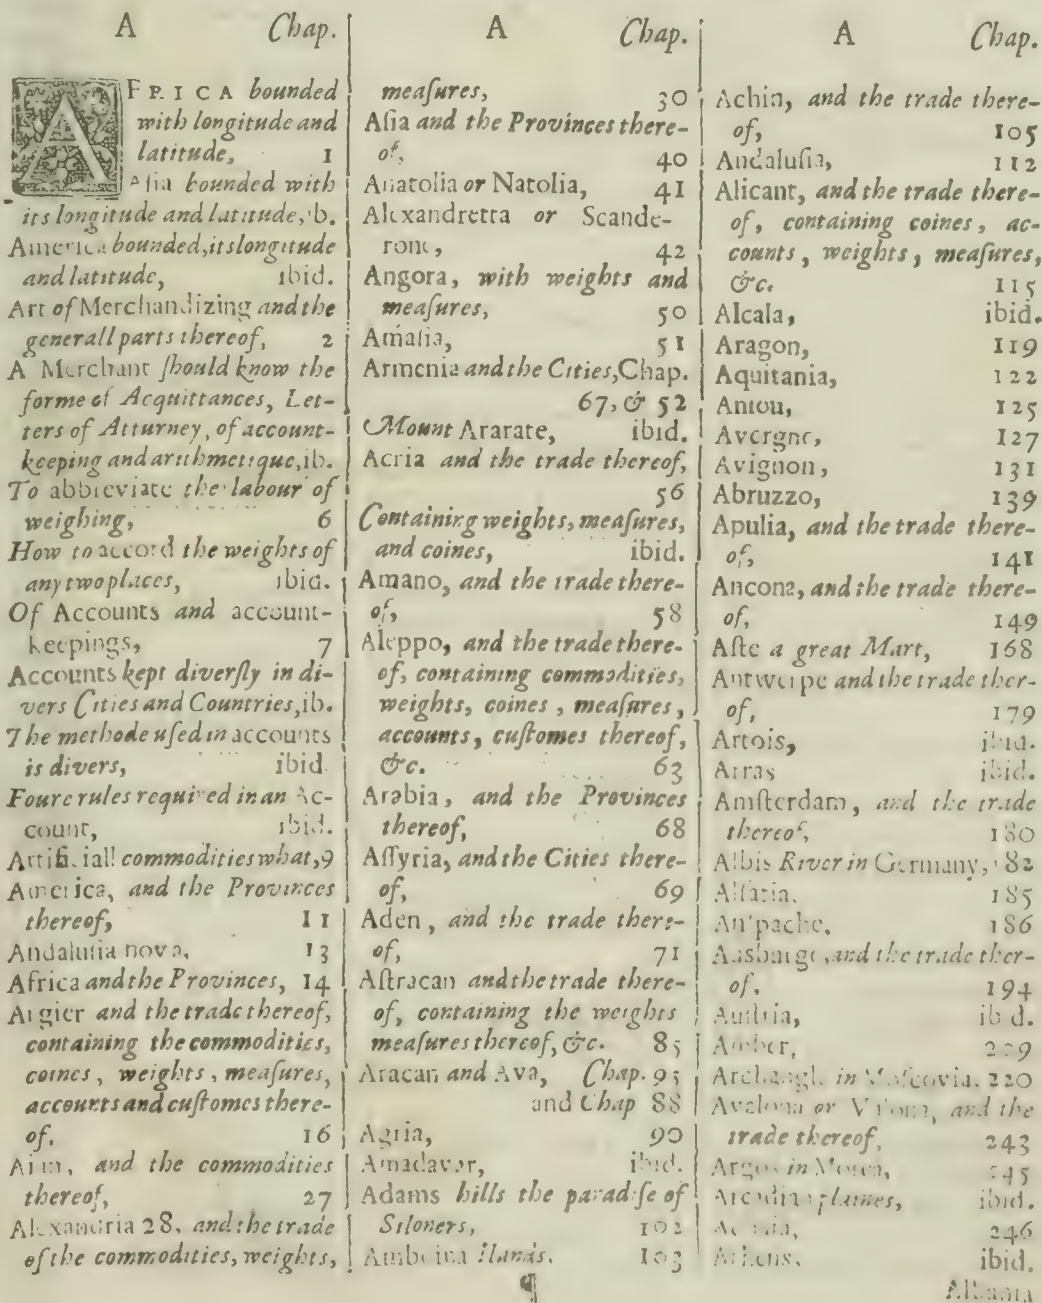 A Chap.
AFRICA bounded
with longitude and
latitude, 1
Asia bounded with
its longitude and latitude, ib.
America bounded, its longitude
and latitude, ibid.
Art of Merchandizing and the
generall parts thereof, 2
A Merchant ſhould know the
forme of Acquittances, Let-
ters of Atturney, of account-
keeping and arithmetique, ib.
To abbreviate the labour of
weighing, 6
How to accord the weights of
any two places, ibid.
Of Accounts and account-
keepings, 7
Accounts kept diverſly in di-
vers Cities and Countries, ib.
The methode uſed in accounts
is divers, ibid.
Foure rules required in an Ac-
count, ibid.
Artificiall commodities what, 9
America, and the Provinces
thereof, 11
Andaluſia nova, 13
Africa and the Provinces, 14
Argier and the trade thereof,
containing the commodities,
coines, weights, meaſures,
accounts and cuſtomes there-
of, 16
and the commodities
thereof, 27
Alexandria 28, and the trade
of the commodities, weights,
A Chap.
meaſures, 30
Aſia and the Provinces there-
of, 40
Anatolia or Natolia, 41
Alexandretta or Scande-
rone, 42
Angora, with weights and
meaſures, 50
Amaſia, 51
Armenia and the Cities, Chap.
67, & 52
Mount Ararate, ibid.
Acria and the trade thereof,
56
Containing weights, meaſures,
and coines, ibid.
Amano, and the trade there-
of, 58
Aleppo, and the trade there-
of, containing commodities,
weights, coines, meaſures,
accounts, cuſtomes thereof,
&c. 63
Arabia, and the Provinces
thereof, 68
Aſſyria, and the Cities there-
of, 69
Aden, and the trade there-
of, 71
Aſtracan and the trade there-
of, containing the weights
meaſures thereof, &c. 85
Aracan and Ava, Chap. 95
and Chap 88
Agria, 90
Amadavar, ibid.
Adams hills the paradiſe of
Siloners, 102
Amboina Ilands. 103
¶
A Chap.
Achin, and the trade there-
of, 105
Andaluſia, 112
Alicant, and the trade there-
of, containing coines, ac-
counts, weights, meaſures,
&c. 115
Alcala, ibid.
Aragon, 119
Aquitania, 122
Aniou, 125
Avergne, 127
Avignon, 131
Abruzzo, 139
Apulia, and the trade there-
of, 141
Ancona, and the trade there-
of, 149
Aſte a great Mart, 168
Antwerpe and the trade ther-
of, 179
Artois, ibid.
Arras ibid.
Amſterdam, and the trade
thereof, 180
Albis River in Germany, 182
Alſatia, 185
Anſpache, 186
Ausburge, and the trade ther-
of, 194
Auſtria, ibid.
Amber, 209
Archangle in Moſcovia, 220
Avalona or Valona, and the
trade thereof, 243
Argos in Morea, 245
Arcadian plaines, ibid.
246
Athens, ibid.
Albania